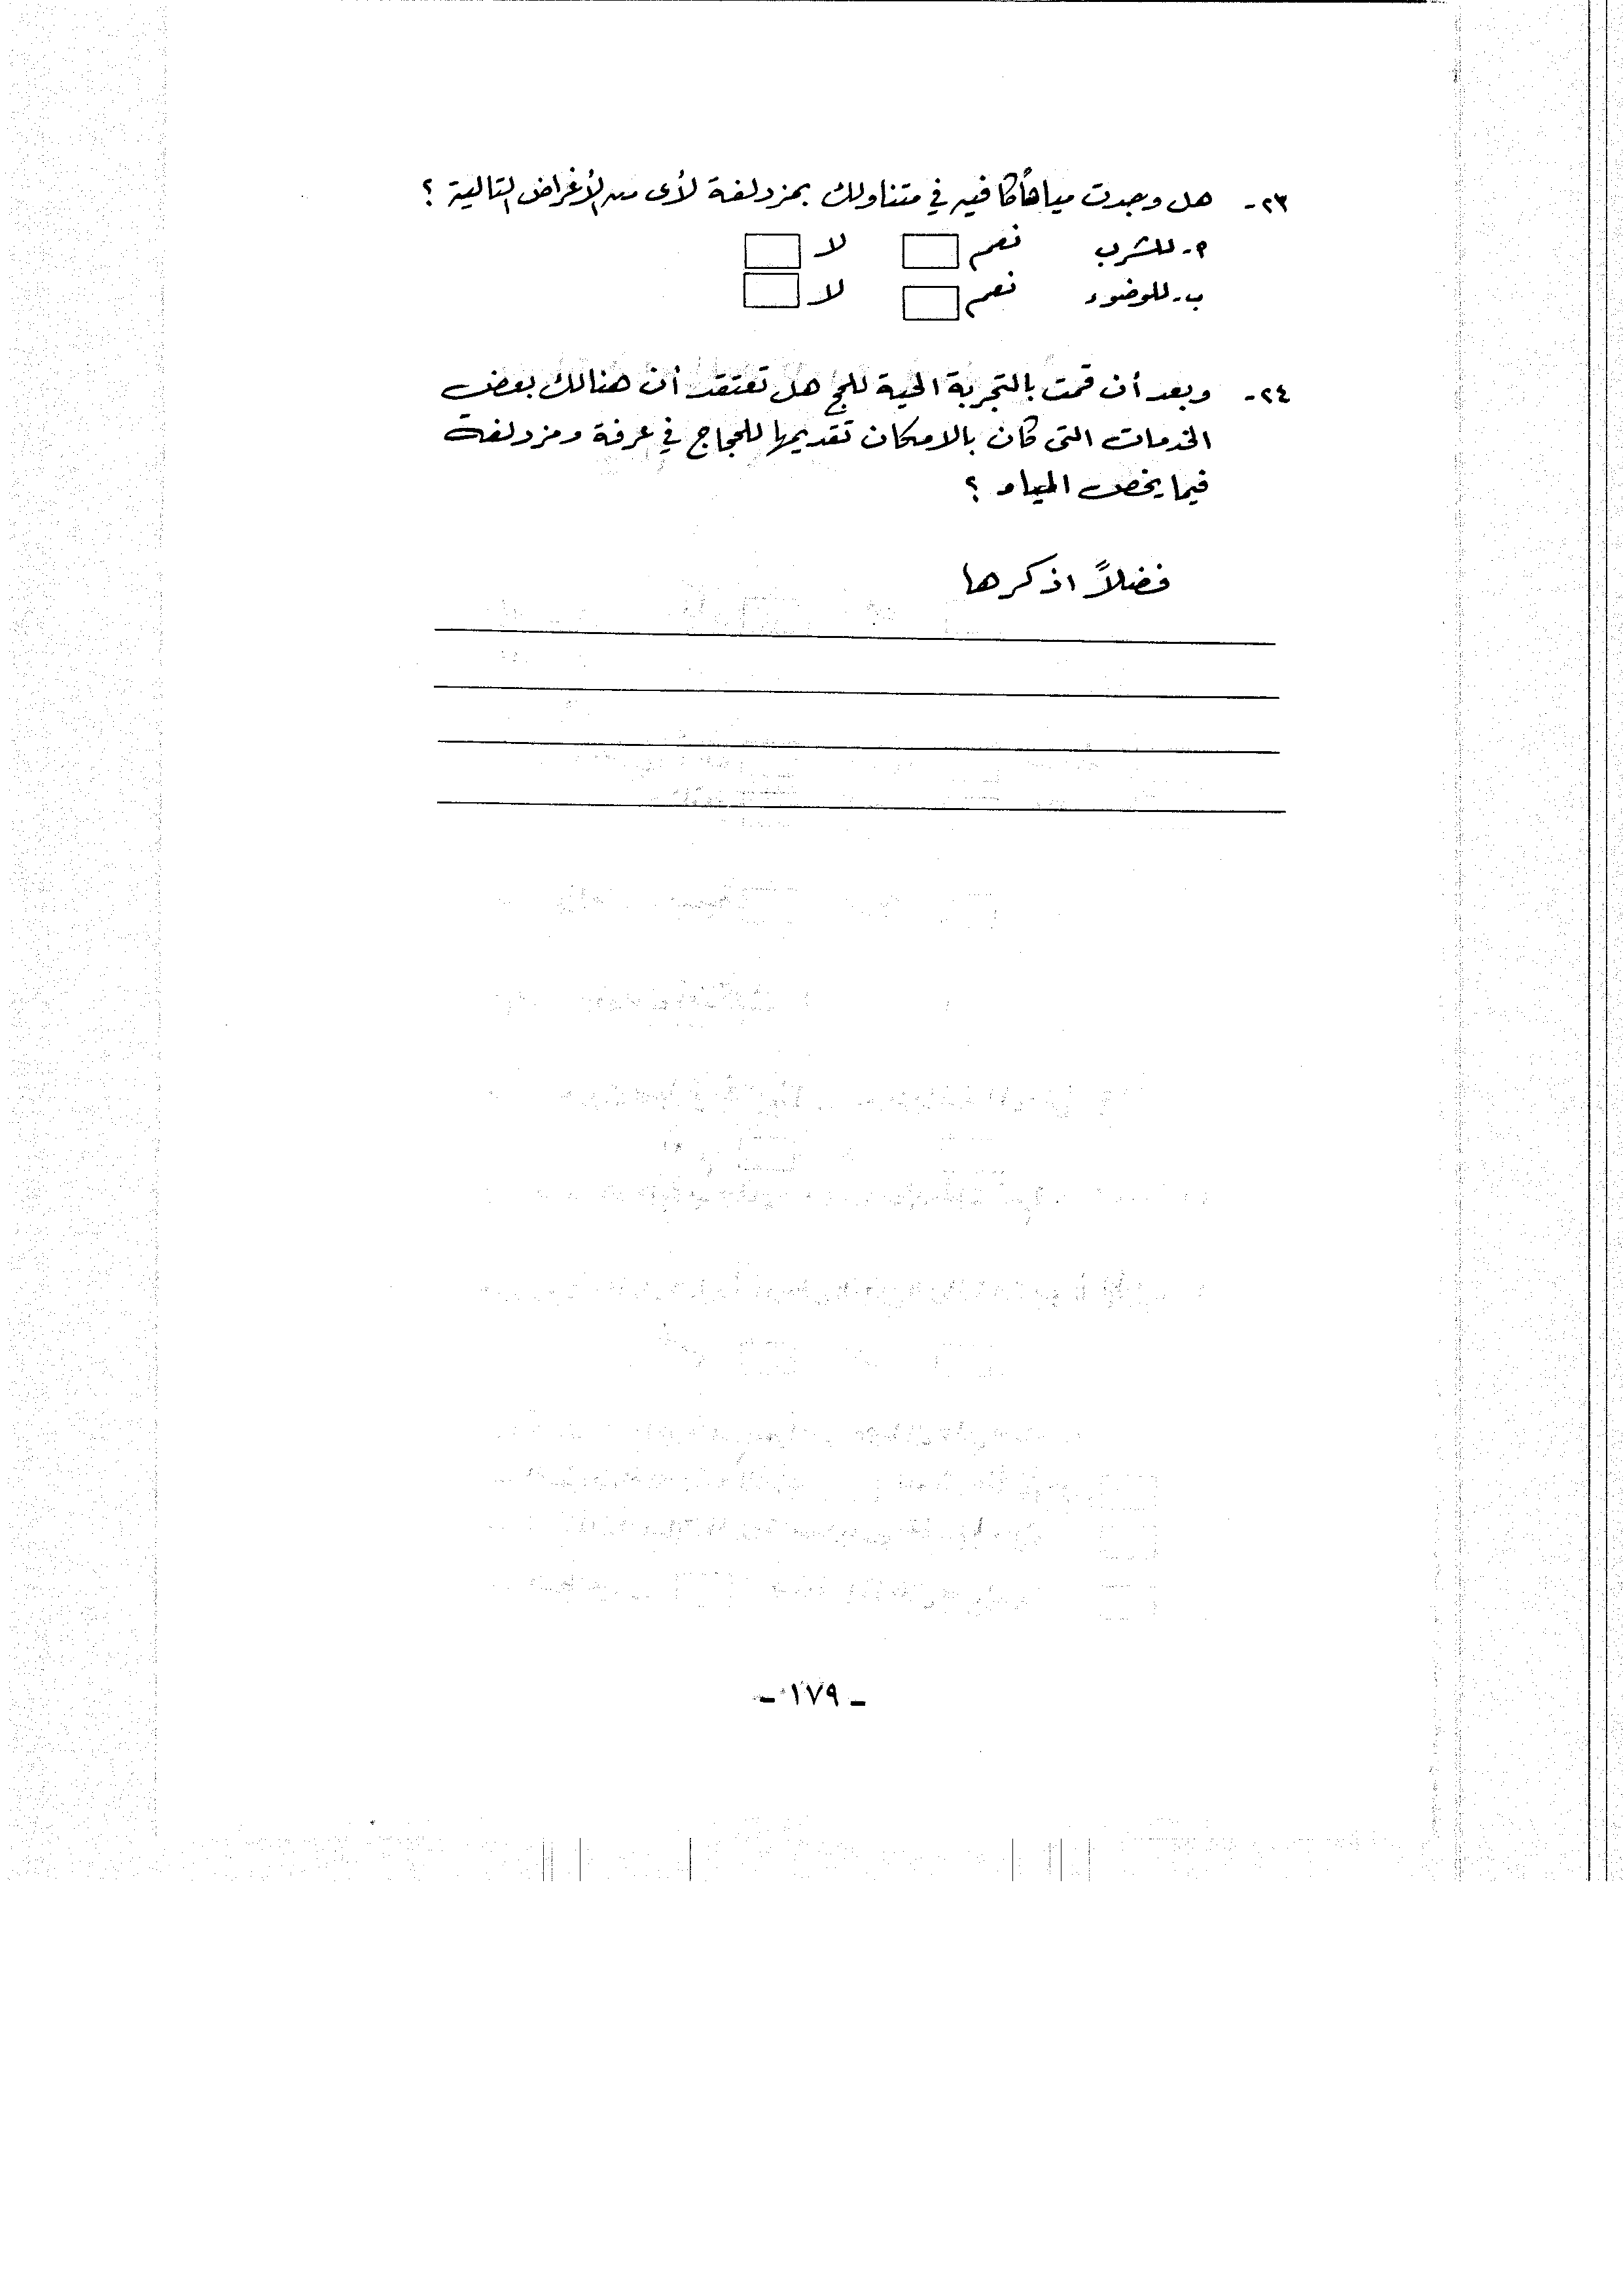 ٢٣- هل وجدت مياهاً كافيه في متناولك بمزدلفة لأى من الأغراض التالية ؟
٩- للشرب نعم لا
ب- للوضوء نعم لا
٢٤- وبعد أن قمت بالتجربة الحية للحج هل تعتقد أن هنالك بعض
الخدمات التى كان بالامكان تقديمها للحجاج في عرفة ومزدلفة
فيما يخص المياه ؟
فضلاً اذكرها
- ١٧٩ -